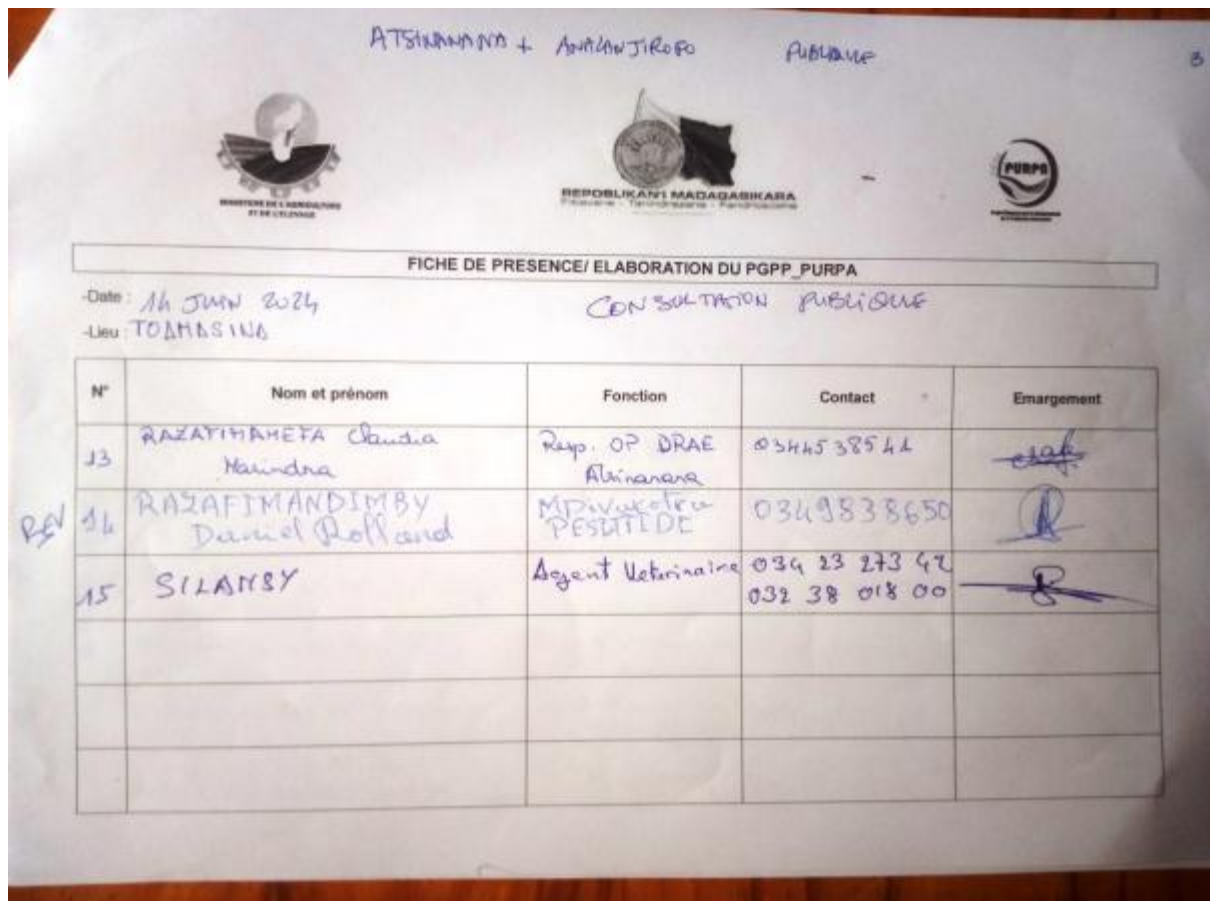 ATSINANANA + ANALANJIROFO PUBLIQUE 3
MINISTERE DE L'AGRICULTURE
ET DE L'ELEVAGE
REPOBLIKAN'I MADAGASIKARA
Fitiavana - Tanindrazana - Fandrosoana
PURPA
FICHE DE PRESENCE/ ELABORATION DU PGPP_PURPA
-Date : 14 JUIN 2024 CONSULTATION PUBLIQUE
-Lieu : TOAMASINA
N° Nom et prénom Fonction Contact Emargement
13 RAZAFIMAHEFA Claudia Resp. OP DRAE 0344538541
Narindra Atsinanana
REV 14 RAZAFIMANDIMBY Mpivarotra 0349838650
Daniel Rolland PESTITIDE
15 SILAMSY Agent Veterinaire 034 23 273 42
032 38 018 00